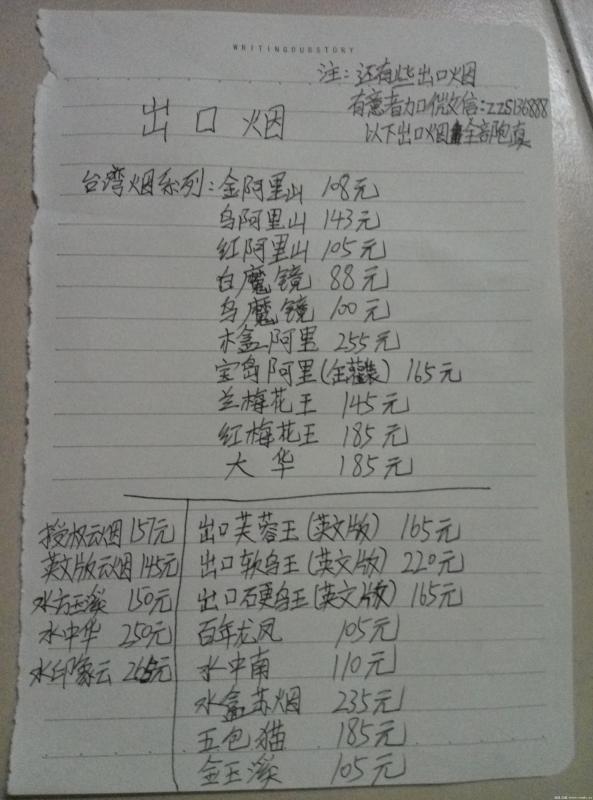 WRITINGOURSTORY
注：还有些出口烟
有意者加微信：ZZS136888
以下出口烟全部跑真
出口烟
台湾烟系列：金阿里山 108元
乌阿里山 143元
红阿里山 105元
白魔镜 88元
乌魔镜 100元
木盒阿里 255元
宝岛阿里(金藏装) 165元
兰梅花王 145元
红梅花王 185元
大华 185元
授权云烟 157元
英文版云烟 145元
水方玉溪 150元
水中华 250元
水印象云 265元
出口芙蓉王(英文版) 165元
出口软乌王(英文版) 220元
出口硬乌王(英文版) 165元
百年龙凤 105元
水中南 110元
水盒苏烟 235元
五包猫 185元
金玉溪 105元